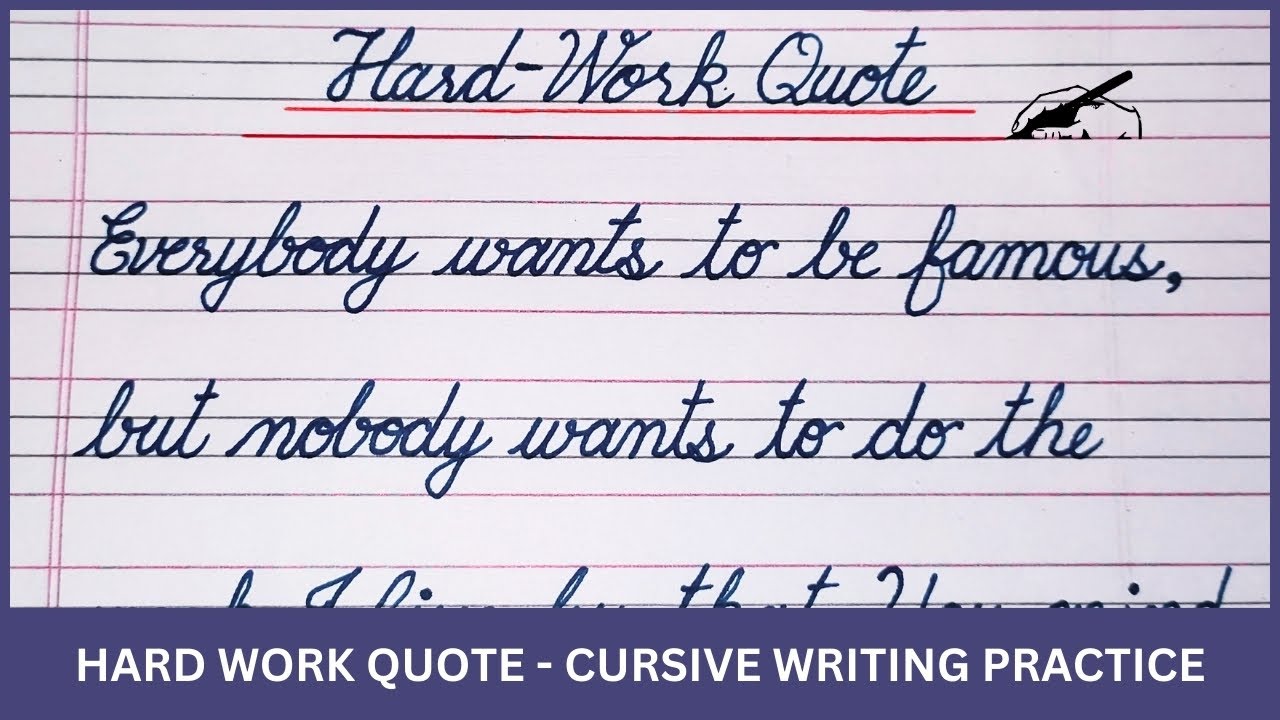 Hard-Work Quote
Everybody wants to be famous,
but nobody wants to do the
HARD WORK QUOTE - CURSIVE WRITING PRACTICE